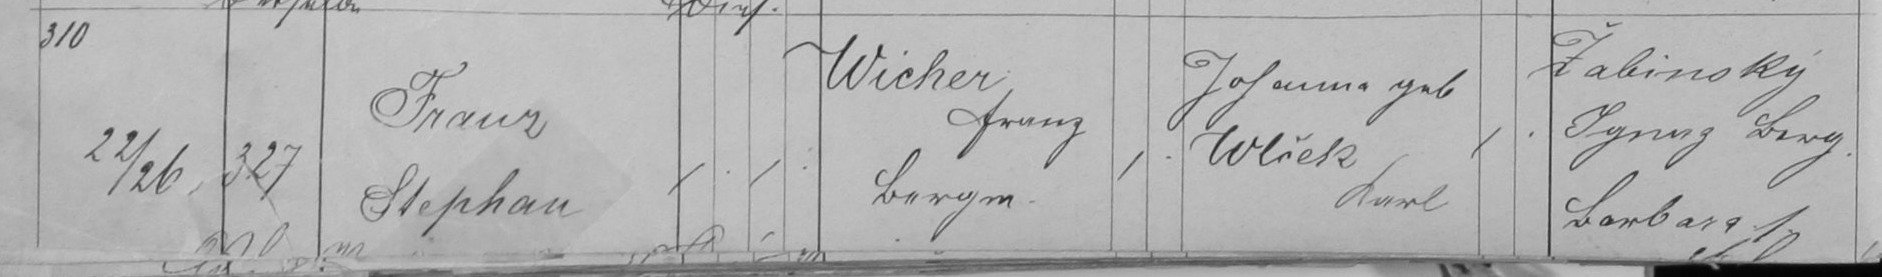 310
22/26. 327
Franz
Stephan
Wicher
Franz
Bergm.
Johanna geb
Wlček
Karl
Žabinský
Ignaz Berg.
Barbara